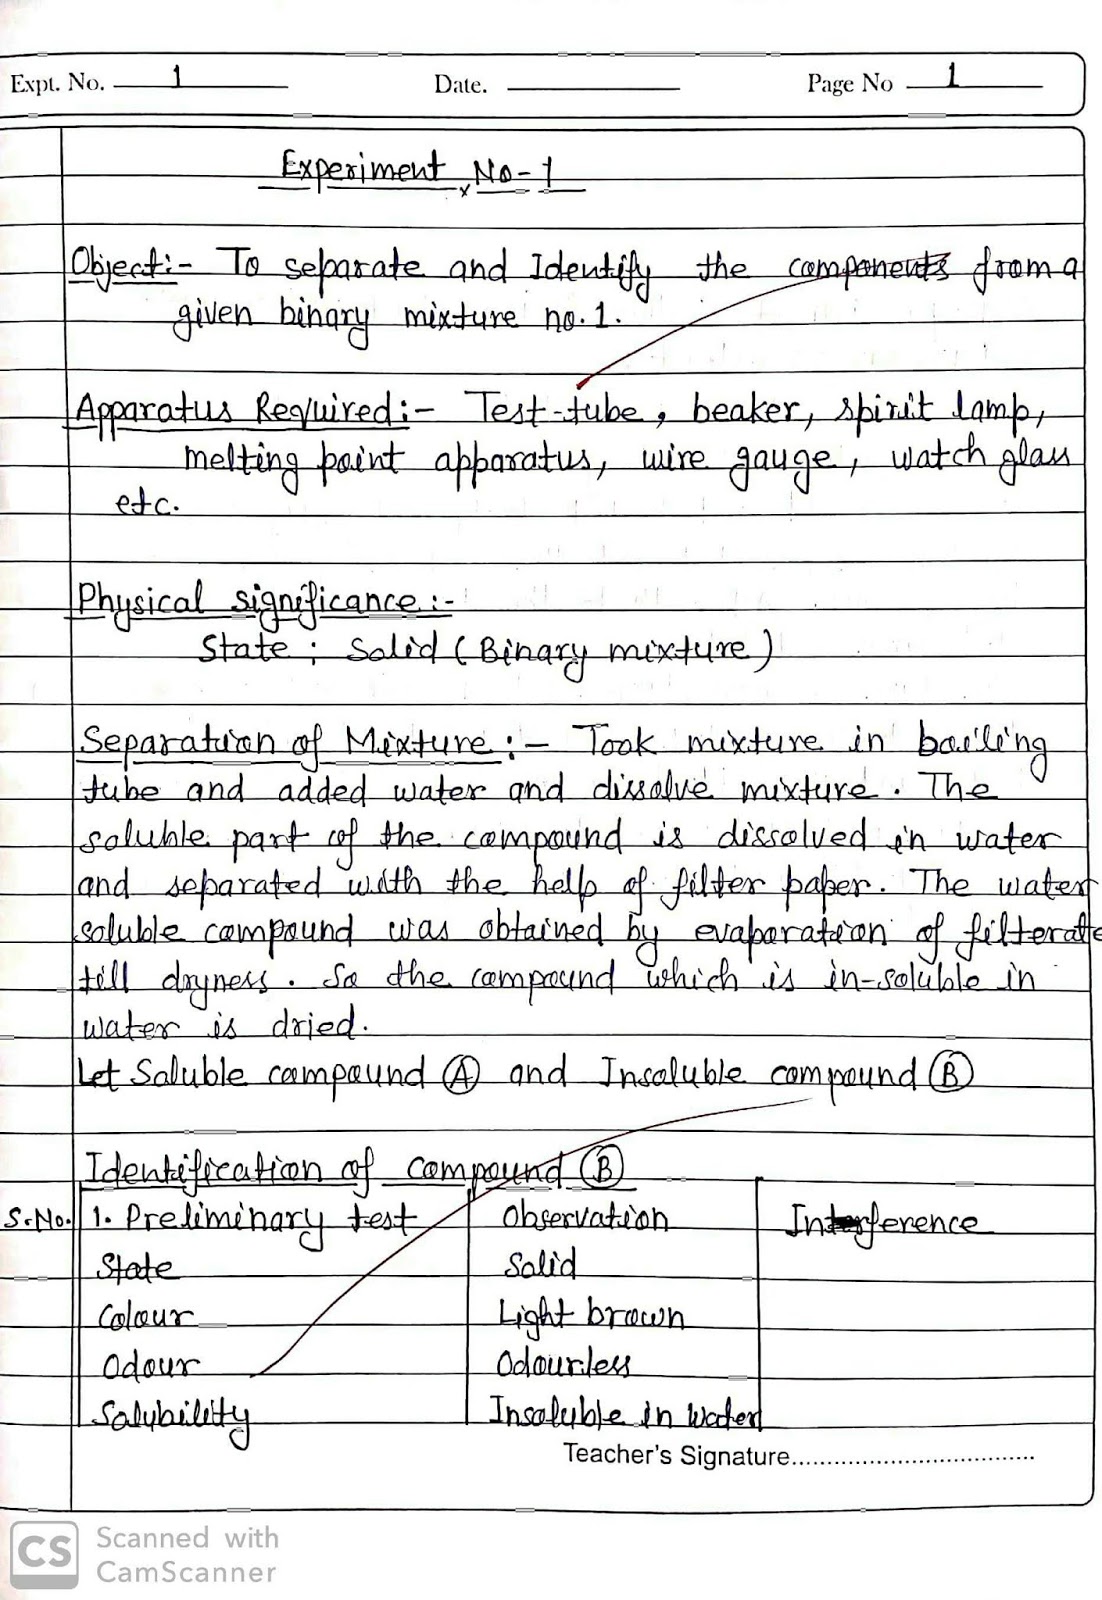 Expt. No. 1 Date. Page No 1
Experiment No-1
Object:- To separate and Identify the components from a
given binary mixture no. 1.
Apparatus Required:- Test-tube, beaker, spirit lamp,
melting point apparatus, wire gauge, watch glass
etc.
Physical significance:-
State : Solid (Binary mixture)
Separation of Mixture:- Took mixture in boiling
tube and added water and dissolve mixture. The
soluble part of the compound is dissolved in water
and separated with the help of filter paper. The water
soluble compound was obtained by evaporation of filterate
till dryness. So the compound which is in-soluble in
water is dried.
Let Soluble compound A and Insoluble compound B
Identification of compound B
S.No. 1. Preliminary test Observation Interference
State Solid
Colour Light brown
Odour Odourless
Solybility Insoluble in Water
Teacher's Signature..................................
CS Scanned with
CamScanner